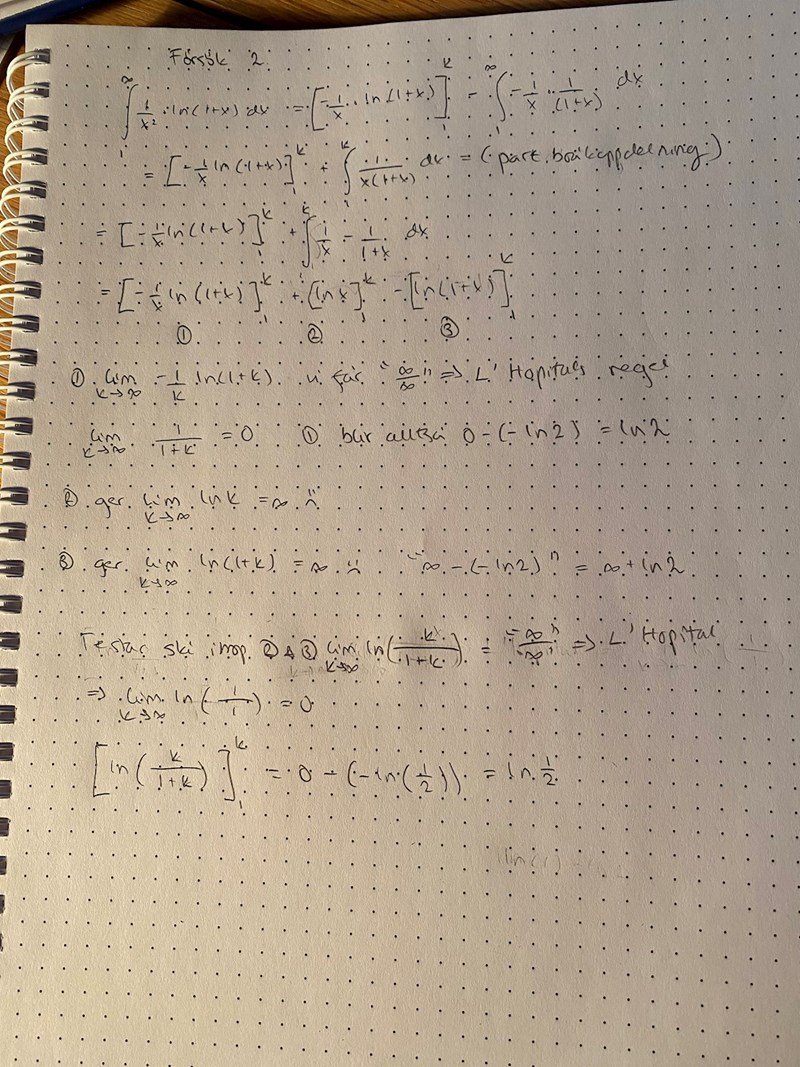 Försök 2
∫₁^∞ 1/x² · ln(1+x) dx = [-1/x · ln(1+x)]₁^k - ∫₁^∞ -1/x · 1/(1+x) dx
= [-1/x ln(1+x)]₁^k + ∫₁^k 1/(x(1+x)) dx = (part. bråkuppdelning)
= [-1/x ln(1+x)]₁^k + ∫₁^k 1/x - 1/(1+x) dx
= [-1/x ln(1+x)]₁^k + [ln x]₁^k - [ln(1+x)]₁^k
① ② ③
① lim k→∞ -1/k ln(1+k) vi får "∞/∞" => L'Hopitals regel
lim k→∞ 1/(1+k) = 0 ① blir alltså 0-(-ln2) = ln2
② ger lim k→∞ ln k = ∞
③ ger lim k→∞ ln(1+k) = ∞ "∞-(-ln2)" = ∞+ln2
Testar ihop ② & ③ lim k→∞ ln(k/(1+k)) = "∞/∞" => L'Hopital
=> lim k→∞ ln(1/1) = 0
[ln(k/(1+k))]₁^k = 0 - (-ln(1/2)) = ln 1/2